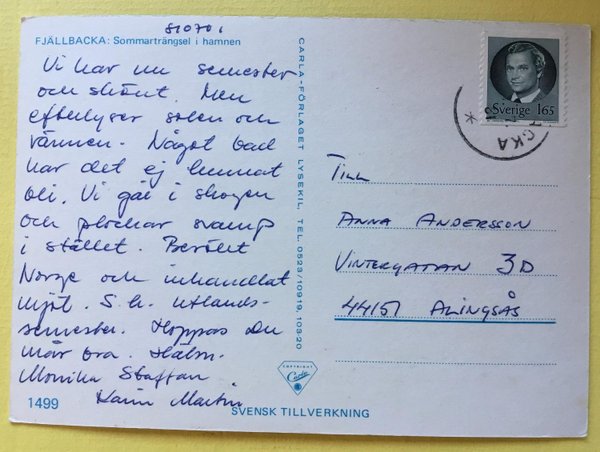 810701
FJÄLLBACKA: Sommarträngsel i hamnen
Vi har nu semester
och skönt. Men
efterlyser solen och
värmen. Något bad
har det ej hunnat
bli. Vi går i skogen
och plockar svamp
i stället. Besökt
Norge och inhandlat
mjöl. S.k. utlands-
semester. Hoppas Du
mår bra. Hälsn.
Monika Staffan
Karin Martin
1499
SVENSK TILLVERKNING
CARLA-FÖRLAGET LYSEKIL, TEL. 0523/10919, 103 20
COPYRIGHT
Carla
Sverige 165
CKA
TILL
ANNA ANDERSSON
VINTERGATAN 3D
44151 ALINGSÅS